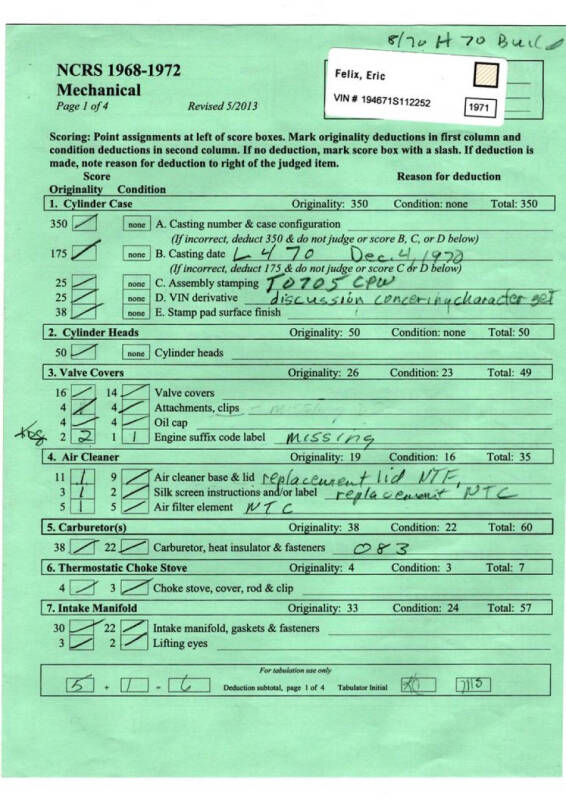 8/70 H 70 Build
NCRS 1968-1972
Mechanical
Page 1 of 4 Revised 5/2013
Felix, Eric
VIN # 194671S112252
1971
Scoring: Point assignments at left of score boxes. Mark originality deductions in first column and
condition deductions in second column. If no deduction, mark score box with a slash. If deduction is
made, note reason for deduction to right of the judged item.
Score Reason for deduction
Originality Condition
1. Cylinder Case Originality: 350 Condition: none Total: 350
350 none A. Casting number & case configuration
(If incorrect, deduct 350 & do not judge or score B, C, or D below)
175 none B. Casting date L 4 70 Dec. 4, 1970
(If incorrect, deduct 175 & do not judge or score C or D below)
25 none C. Assembly stamping T0705 CPW
25 none D. VIN derivative discussion concering character set
38 none E. Stamp pad surface finish
2. Cylinder Heads Originality: 50 Condition: none Total: 50
50 none Cylinder heads
3. Valve Covers Originality: 26 Condition: 23 Total: 49
16 14 Valve covers
4 4 Attachments, clips
4 4 Oil cap
2 2 1 1 Engine suffix code label missing
4. Air Cleaner Originality: 19 Condition: 16 Total: 35
11 1 9 Air cleaner base & lid replacement lid NTF,
3 1 2 Silk screen instructions and/or label replacement NTC
5 1 5 Air filter element NTC
5. Carburetor(s) Originality: 38 Condition: 22 Total: 60
38 22 Carburetor, heat insulator & fasteners 083
6. Thermostatic Choke Stove Originality: 4 Condition: 3 Total: 7
4 3 Choke stove, cover, rod & clip
7. Intake Manifold Originality: 33 Condition: 24 Total: 57
30 22 Intake manifold, gaskets & fasteners
3 2 Lifting eyes
For tabulation use only
5 + 1 = 6 Deduction subtotal, page 1 of 4 Tabulator Initial